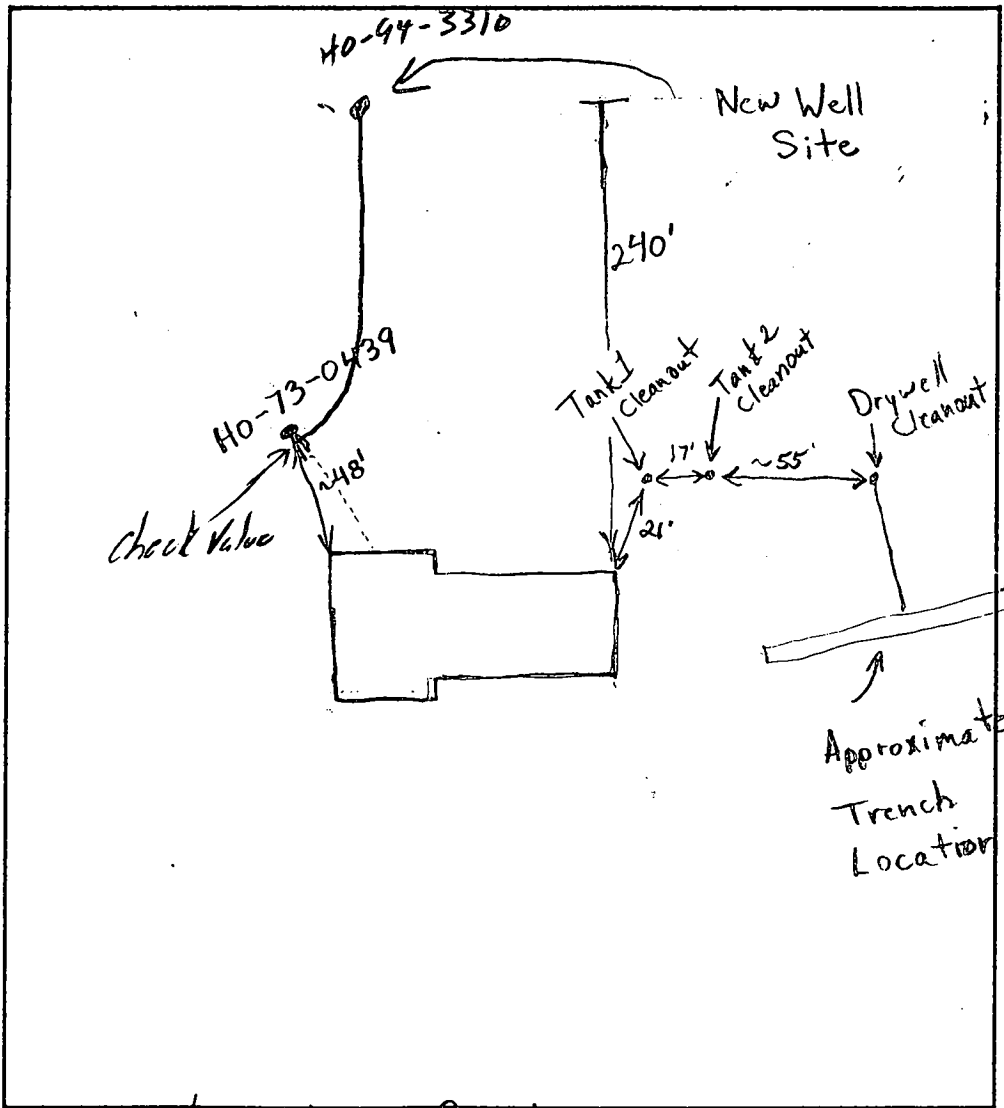 HO-94-3310
New Well
Site
240'
HO-73-0439
Tank 1
Cleanout
Tank 2
Cleanout
Drywell
Cleanout
~48'
17'
~55'
21'
Check Valve
Approximate
Trench
Location